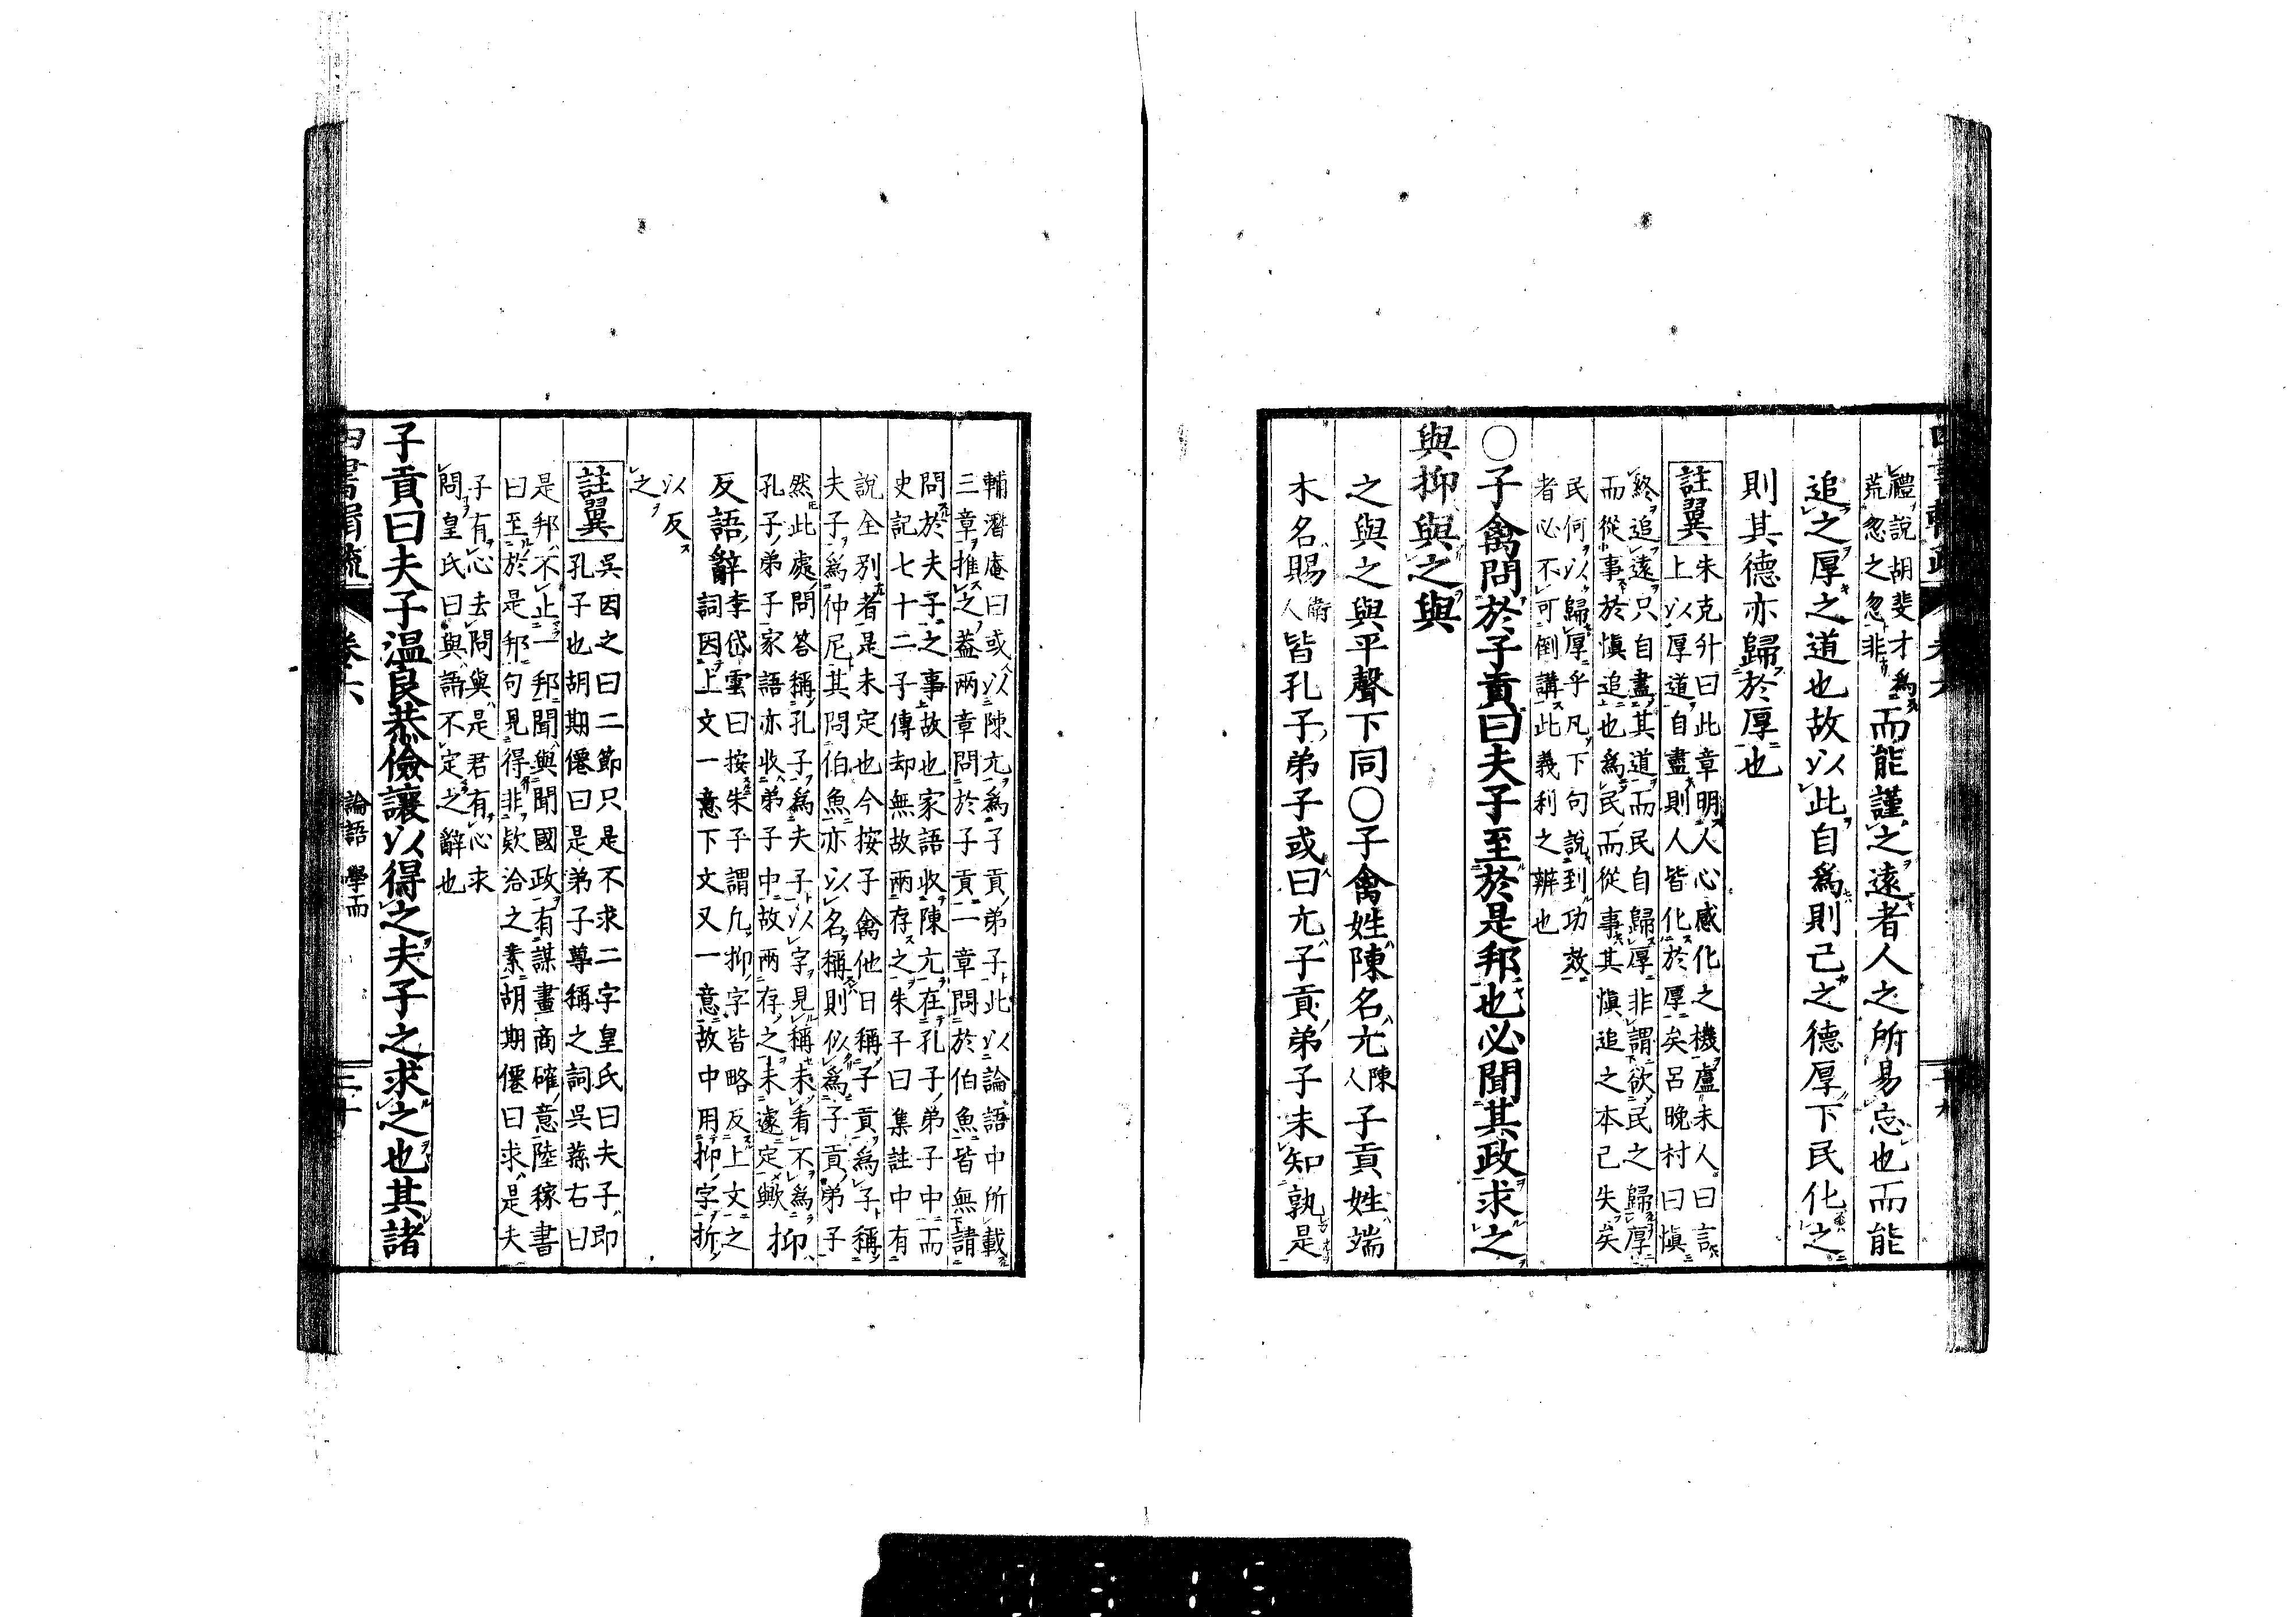 禮説胡斐才爲
荒忽之忽非
而能謹之遠者人之所易忘也而能
追之厚之道也故以此自爲則己之德厚下民化之
則其德亦歸於厚也
註翼
朱克升曰此章明人心感化之機盧未人曰言
上以厚道自盡則人皆化於厚矣呂晩村曰愼
終追遠只自盡其道而民自歸厚非謂欲民之歸厚
而從事於愼追也爲民而從事其愼追之本已失矣
民何以歸厚乎凡下句説到功效
者必不可倒講此義利之辨也
○子禽問於子貢曰夫子至於是邦也必聞其政求之
與抑與之與
之與之與平聲下同○子禽姓陳名亢陳人子貢姓端
木名賜衛人皆孔子弟子或曰亢子貢弟子未知孰是
輔潛庵曰或以陳亢爲子貢弟子此以論語中所載
三章推之蓋兩章問於子貢一章問於伯魚皆無請
問於夫子之事故也家語收陳亢在孔子弟子中而
史記七十二子傳却無故兩存之朱子曰集註中有
説全別者是未定也今按子禽他日稱子貢爲子稱
夫子爲仲尼其問伯魚亦以名稱則似爲子貢弟子
然此處問答稱孔子爲夫子以字見稱未看不爲
孔子弟子家語亦收弟子中故兩存之未遽定歟
抑
反語辭
李岱雲曰按朱子謂凡抑字皆略反上文之
詞因上文一意下文又一意故中用抑字折
以反
之
註翼
吳因之曰二節只是不求二字皇氏曰夫子即
孔子也胡期僊曰是弟子尊稱之詞吳蓀右曰
是邦不止一邦聞與聞國政有謀畫商確意陸稼書
曰至於是邦句見得非欵洽之素胡期僊曰求是夫
子有心去問與是君有心求
問皇氏曰與語不定之辭也
子貢曰夫子温良恭儉讓以得之夫子之求之也其諸
卷六
論語 學而
二十